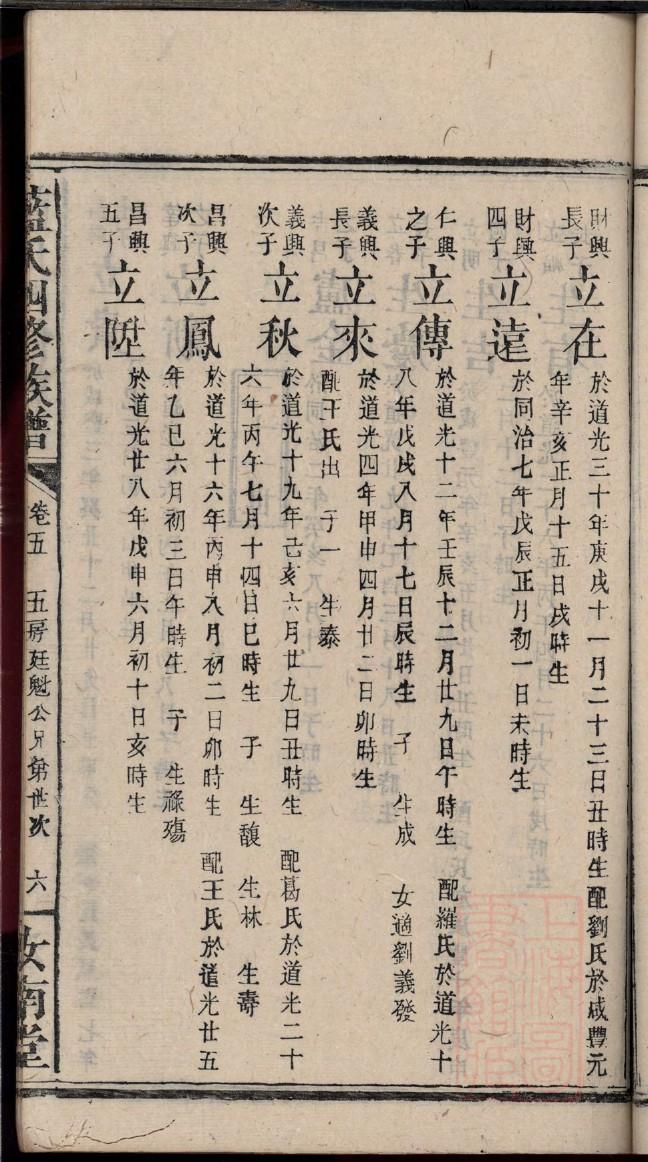 財興
長子
立在
於道光三十年庚戌十一月二十三日丑時生配劉氏於咸豐元
年辛亥正月十五日戌時生
財興
四子
立遠
於同治七年戊辰正月初一日未時生
仁興
之子
立傳
於道光十二年壬辰十二月廿九日午時生 配羅氏於道光十
八年戊戌八月十七日辰時生 子 生成 女適劉義發
義興
長子
立來
於道光四年甲申四月廿二日卯時生
配王氏出 子一 生泰
義興
次子
立秋
於道光十九年己亥六月廿九日丑時生 配葛氏於道光二十
六年丙午七月十四日巳時生 子 生馥 生林 生壽
昌興
次子
立鳳
於道光十六年丙申八月初二日卯時生 配王氏於道光廿五
年乙巳六月初三日午時生 子 生祿殤
昌興
五子
立陞
於道光廿八年戊申六月初十日亥時生
藍氏四修族譜 卷五 五房廷魁公兄弟世次 六 汝南堂